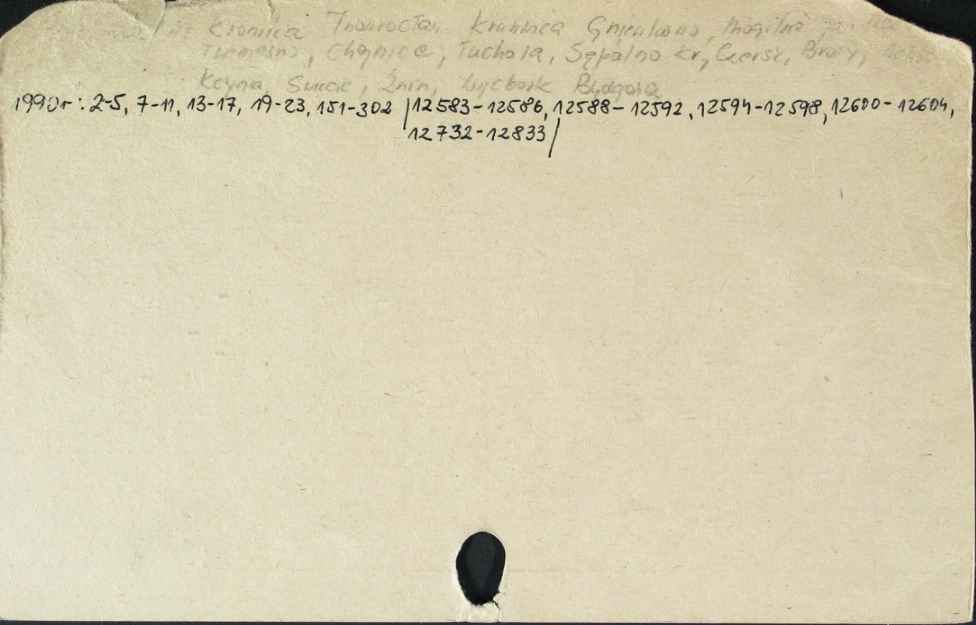 Kronika Inowrocław, Kruszwica, Gniewkowo, Mogilno,
Trzemeszno, Chojnice, Tuchola, Sępólno Kr, Czersk, Brusy,
Kcynia, Świecie, Żnin, Więcbork Bydgoszcz
1990r: 2-5, 7-11, 13-17, 19-23, 151-302 | 12583-12586, 12588-12592, 12594-12598, 12600-12604,
12732-12833 |